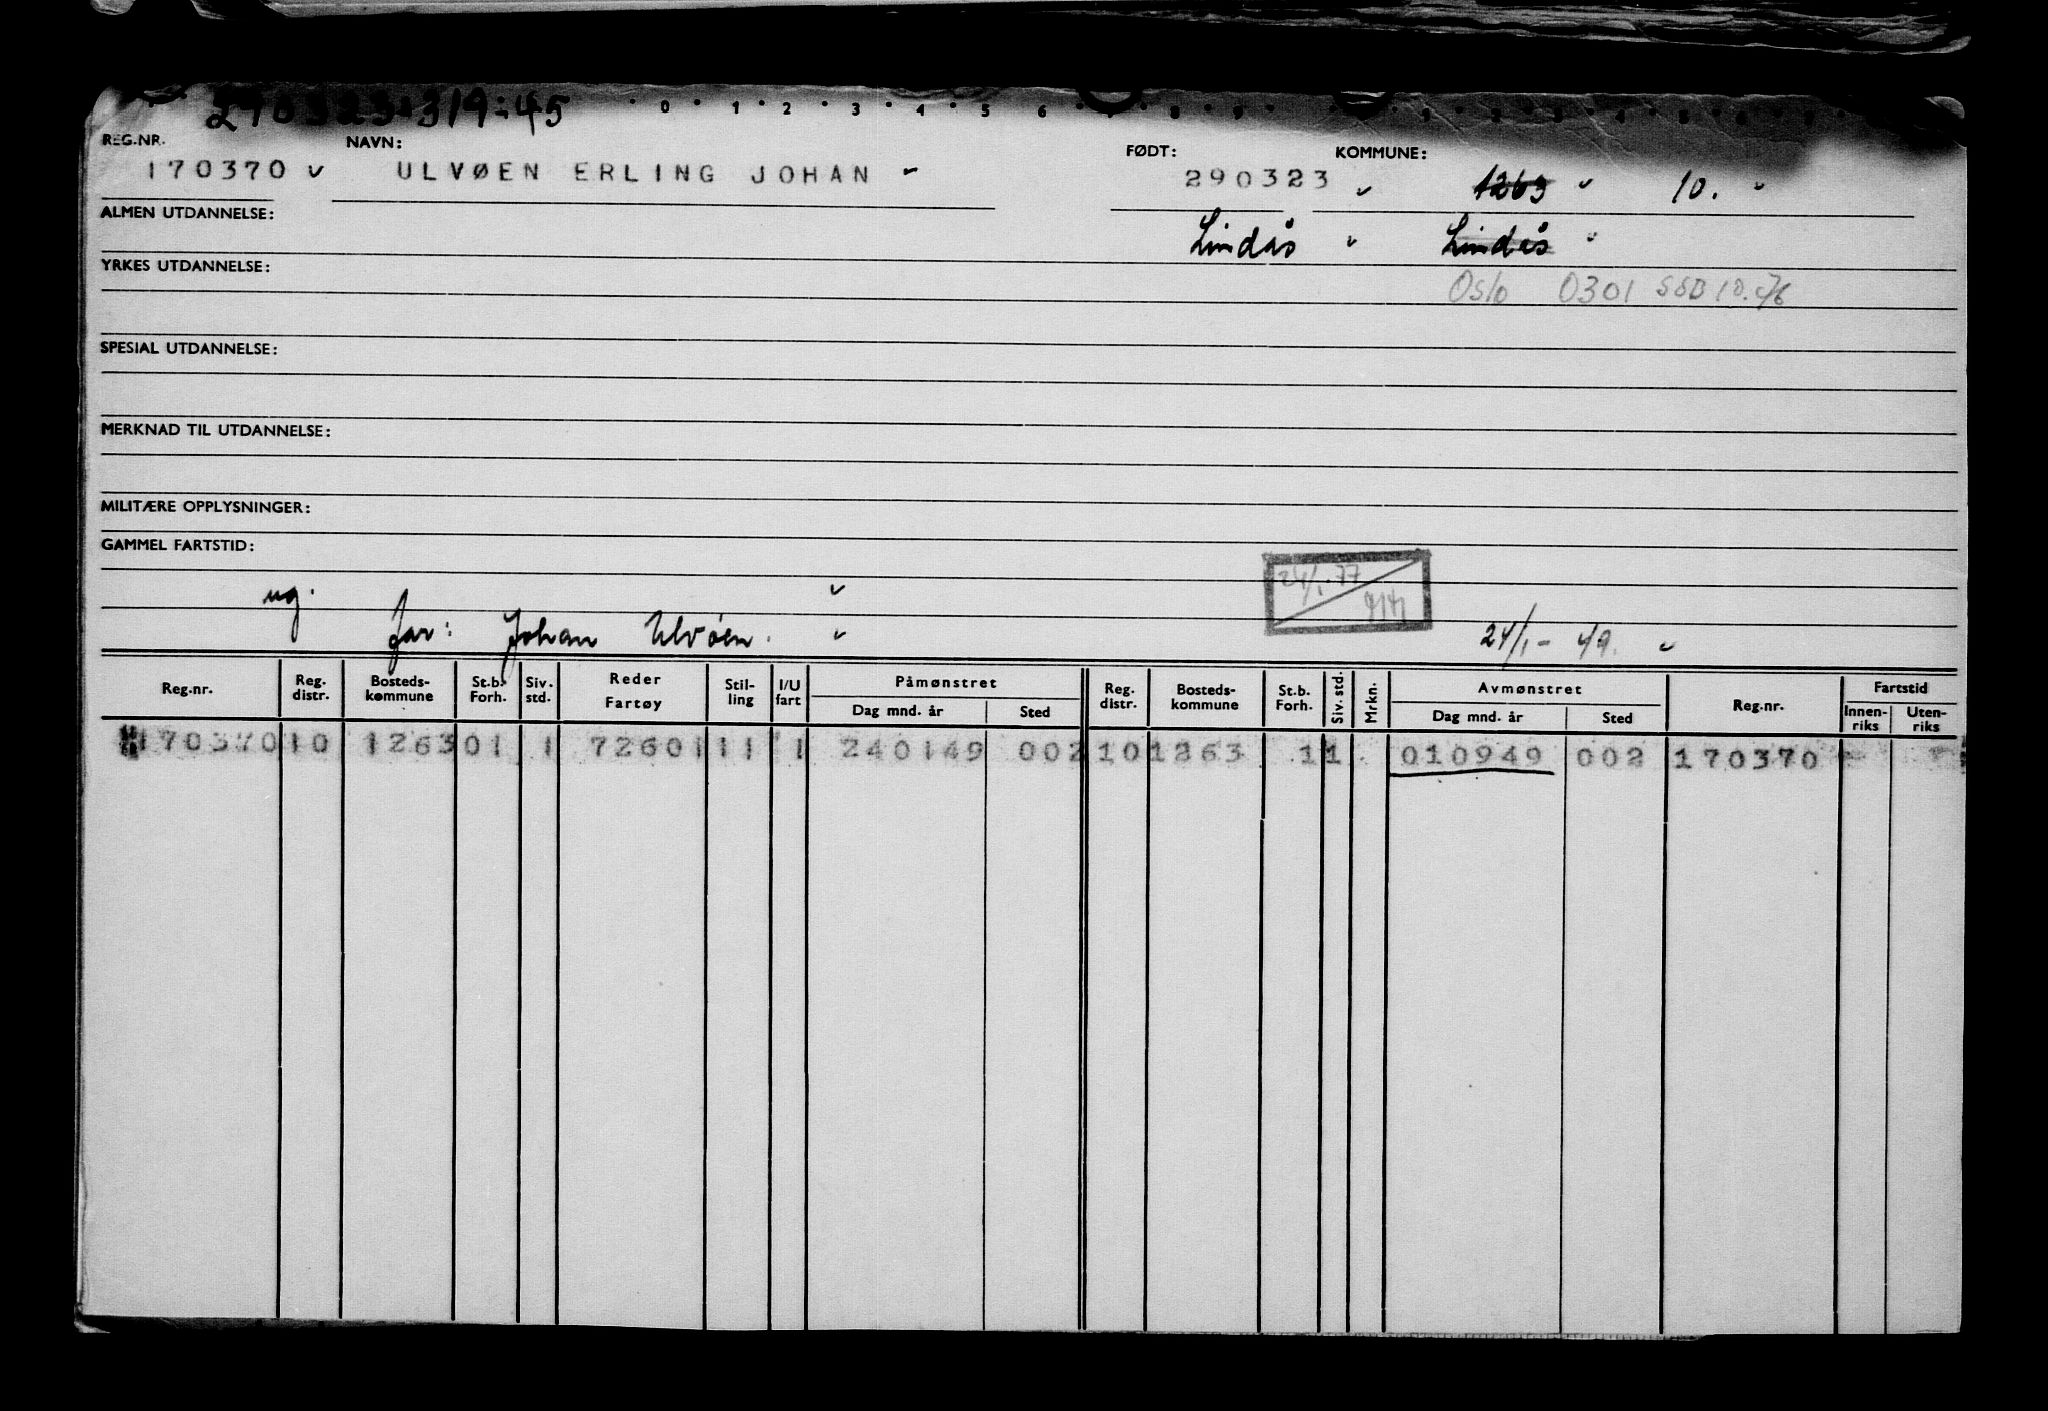 290323 319:45
0 1 2 3 4 5 6 7 8 9
REG.NR. NAVN: FØDT: KOMMUNE:
170370 ULVØEN ERLING JOHAN 290323 1263 10.
ALMEN UTDANNELSE: Lindås Lindås
YRKES UTDANNELSE:
Oslo 0301 SSB 10.
SPESIAL UTDANNELSE:
MERKNAD TIL UTDANNELSE:
MILITÆRE OPPLYSNINGER:
GAMMEL FARTSTID:
24/1.77
ug.
far: Johan Ulvøen. 24/1- 49.
Reg.nr. Reg. distr. Bosteds-kommune St.b. Forh. Siv. std. Reder Fartøy Stil-ling I/U fart Påmønstret Dag mnd. år Sted Reg. distr. Bosteds-kommune St.b. Forh. Siv. std. Mrkn. Avmønstret Dag mnd. år Sted Reg.nr. Fartstid Innen-riks Uten-riks
170370 10 1263 01 1 72601 11 1 240149 002 10 1263 1 1 010949 002 170370